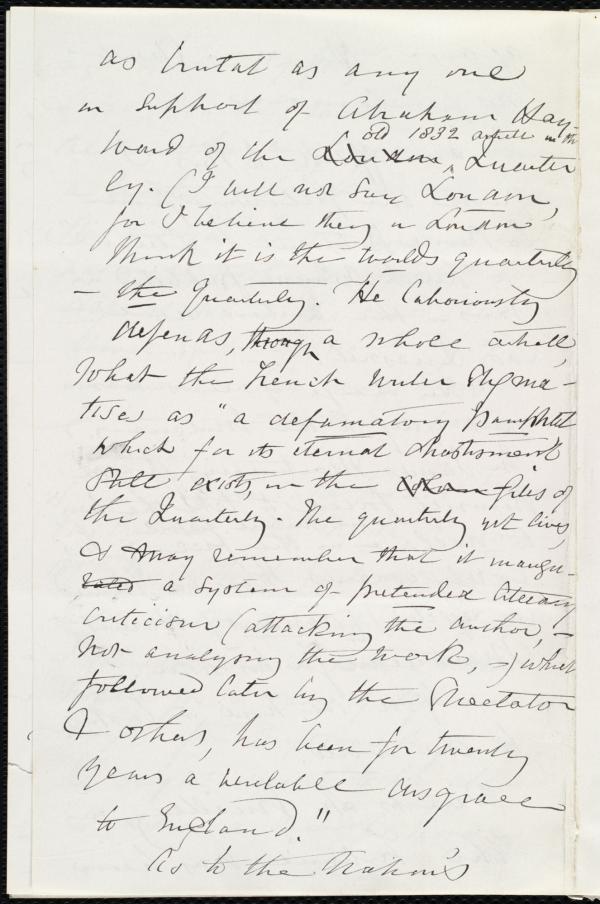 as brutal as any one
in support of Abraham Hay-
old 1832 article in the
ward of the London, Quarter
ly. (I will not say London,
for I believe they in London
think it is the world's quarterly
- the Quarterly. He laboriously
defends, through a whole article,
What the French writer stigma-
tises as "a defamatory pamphlet
which for its eternal chastisement
still exists, in the files of
the Quarterly. The quarterly yet lives,
& may remember that it inaugu-
rated a system of pretended literary
criticism (attacking the author, -
not analysing the work, -) which
followed later by the Spectator
& others, has been for twenty
years a veritable disgrace
to England."
As to the Nation's